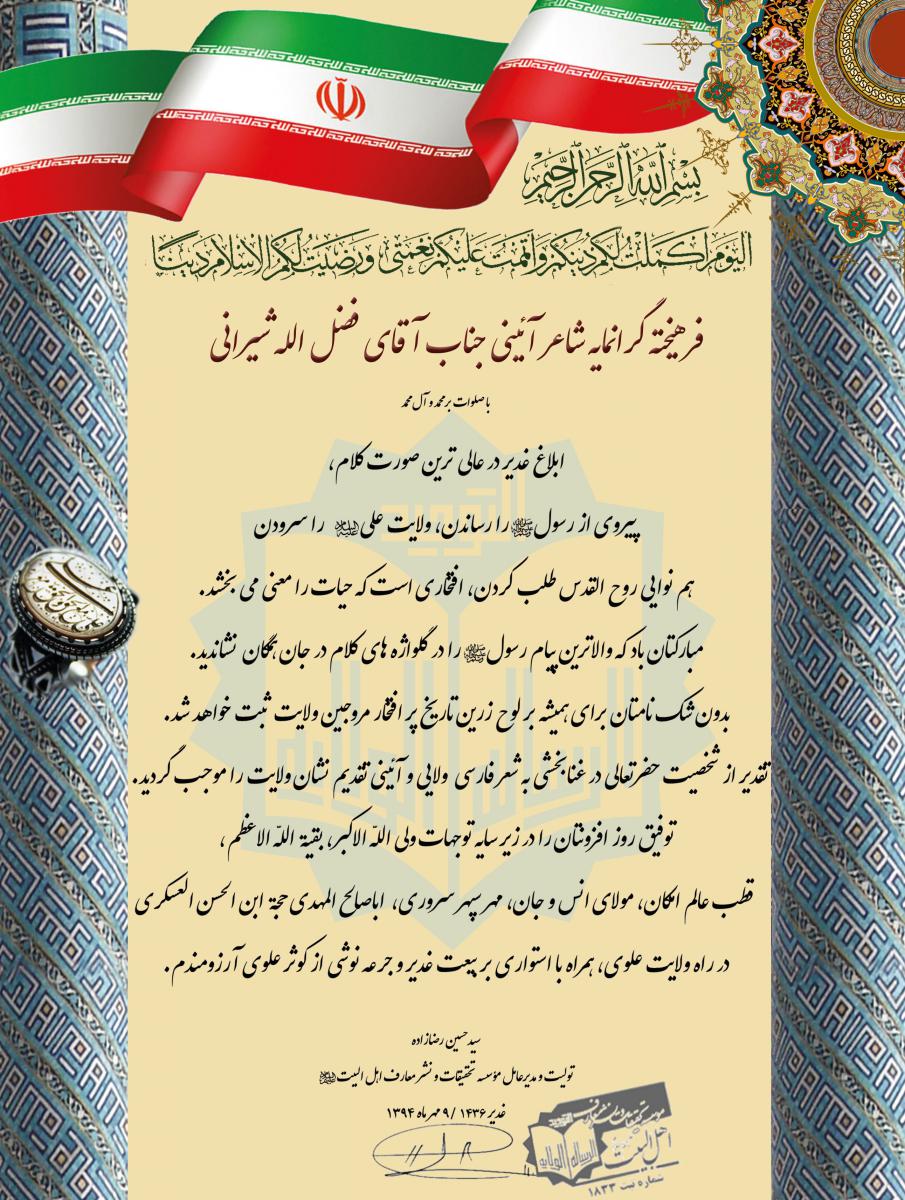 بسم الله الرحمن الرحیم
الیوم اکملت لکم دینکم و اتممت علیکم نعمتی و رضیت لکم الاسلام دینا
فرهیخته گرانمایه شاعر آئینی جناب آقای فضل الله شیرانی
با صلوات بر محمد و آل محمد
ابلاغ غدیر در عالی ترین صورت کلام،
پیروی از رسول ﷺ را رساندن، ولایت علی علیه‌السلام را سرودن
هم نوایی روح القدس طلب کردن، افتخاری است که حیات را معنی می بخشد.
مبارکتان باد که والاترین پیام رسول ﷺ را در گلواژه های کلام در جان همگان نشاندید.
بدون شک نامتان برای همیشه بر لوح زرین تاریخ پر افتخار مروجین ولایت ثبت خواهد شد.
تقدیر از شخصیت حضرتعالی در غنابخشی به شعر فارسی ولایی و آئینی تقدیم نشان ولایت را موجب گردید.
توفیق روز افزونتان را در زیر سایه توجهات ولی اللّه الاکبر، بقیة اللّه الاعظم،
قطب عالم امکان، مولای انس و جان، مهر سپهر سروری، اباصالح المهدی حجة ابن الحسن العسکری
در راه ولایت علوی، همراه با استواری بر بیعت غدیر و جرعه نوشی از کوثر علوی آرزومندم.
سید حسین رضازاده
تولیت و مدیر عامل مؤسسه تحقیقات و نشر معارف اهل البیت علیهم‌السلام
غدیر ۱۴۳۶ / ۹ مهر ماه ۱۳۹۴
مؤسسه تحقیقات و نشر معارف
اهل البیت
الرساله الولایه
شماره ثبت ۱۸۳۳